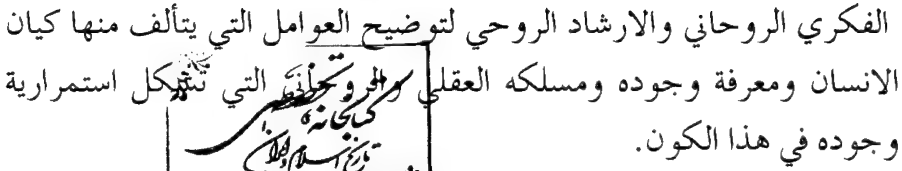 الفكري الروحاني والارشاد الروحي لتوضيح العوامل التي يتألف منها كيان
الانسان ومعرفة وجوده ومسلكه العقلي والروحاني التي تشكل استمرارية
وجوده في هذا الكون.
كتابخانه تخصصی
تاریخ اسلام و ایران